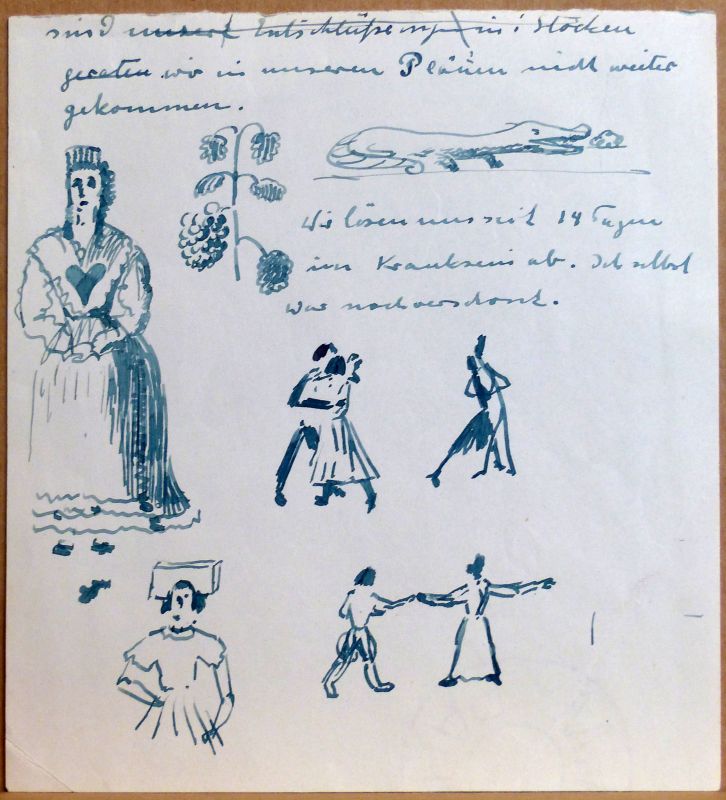 sind unsere Entschlüße ins Stocken
geraten wir in unseren Plänen nicht weiter
gekommen.
Wir lösen uns seit 14 Tagen
im Kranksein ab. Ich selbst
war noch verschont.